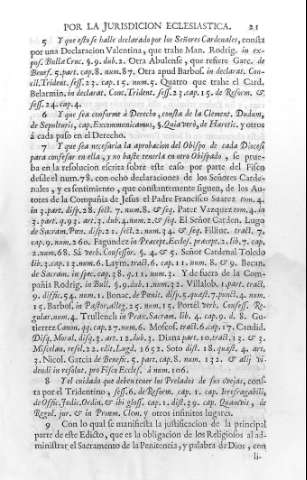 POR LA JURISDICION ECLESIASTICA. 21
5 Y que esto se halle declarado por los Señores Cardenales, consta
por una Declaracion Valentina, que trahe Man. Rodrig. in expos.
Bullæ Cruc. §.9. dub.2. Otra Abulense, que refiere Garc. de
Benef. 5. part. cap.8. num.87. Otra apud Barbos. in declarat. Concil.
Trident. sess.23. cap.15. num.5. Quatro que trahe el Card.
Belarmin. in declarat. Conc. Trident. sess.23. cap.15. de Reform. &
sess.24. cap.4.
6 Y que sea conforme à Derecho, consta de la Clement. Dudum,
de Sepulturis, cap. Excommunicamus, §. Quia verò, de Hæretic. y otros
à cada paso en el Derecho.
7 Y que sea necesaria la aprobacion del Obispo de cada Diocesi
para confesar en ella, y no baste tenerla en otro Obispado, se prueba
en la resolucion escrita sobre este caso por parte del Fisco
desde el num.78. con ocho declaraciones de los Señores Cardenales,
y es sentimiento, que constantemente siguen, de los Autores
de la Compañia de Jesus el Padre Francisco Suarez tom.4.
in 3. part. disp.28. sect.7. num.8. & seq. Pater Vazquez tom.4. in
3. part. q.93. art.3. dub.4. num.2. & seq. El Señor Carden. Lugo
de Sacram. Pœn. disp.21. sect.2. num.34. & seq. Filliuc. tract. 7.
cap.9. num.260. Fagundez in Præcept. Eccles. præcept.2. lib.7. cap.
2. num.68. Sà verb. Confessor. §. 4. & 5. Señor Cardenal Toledo
lib.3. cap.13. num.6. Laym. tract.6. cap. 11. num. 8. & 9. Becan.
de Sacram. in spec. cap.38. q.11. num.3. Y de fuera de la Compañia
Rodrig. in Bull. §.9. dub.1. num.32. Villalob. 1. part. tract.
9. diffic.54. num.1. Bonac. de Pœnit. disp.5. quæst.7. punct.4. num.
15. Barbos. in Pastor. alleg.25. num.15. Portel. verb. Confess. Regular.
num.4. Trullench in Prax. Sacram. lib. 4. cap.9. d. 8. Gutierrez
Canon. qq. cap.27. num.6. Moscos. tract.6. cap.17. Candid.
Disq. Moral. disq.8. art.12. dub.3. Diana part.10. tract.13. & 3.
Miscelan. resol.22. edit. Lugd. 1652. Soto dist. 18. quæst. 4. art.
3. Nicol. Garcia de Benefic. 5. part. cap.8. num. 132. & alij videndi
in resolut. pro Fisco Eccles. à num.106.
8 Y el cuidado que deben tener los Prelados de sus ovejas, consta
por el Tridentino, sess.6. de Reform. cap. 1. cap. Irrefragabili,
de Offic. Judic. Ordin. & ibi gloss. cap.1. dist.29. cap. Quamvis, de
Regul. jur. & in Proœm. Clem. y otros infinitos lugares.
9 Con lo qual se manifiesta la justificacion de la principal
parte de este Edicto, que es la obligacion de los Religiosos al administrar
el Sacramento de la Penitencia, y palabra de Dios, con
li-